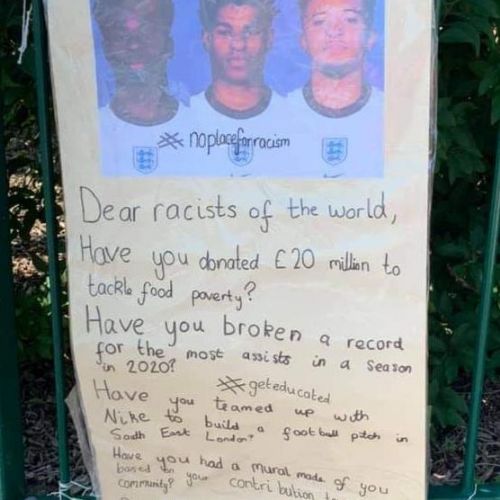 #noplaceforracism
Dear racists of the world,
Have you donated £20 million to
tackle food poverty?
Have you broken a record
for the most assists in a season
in 2020?
#geteducated
Have you teamed up with
Nike to build a football pitch in
South East London?
Have you had a mural made of you
based on your contribution to
community?